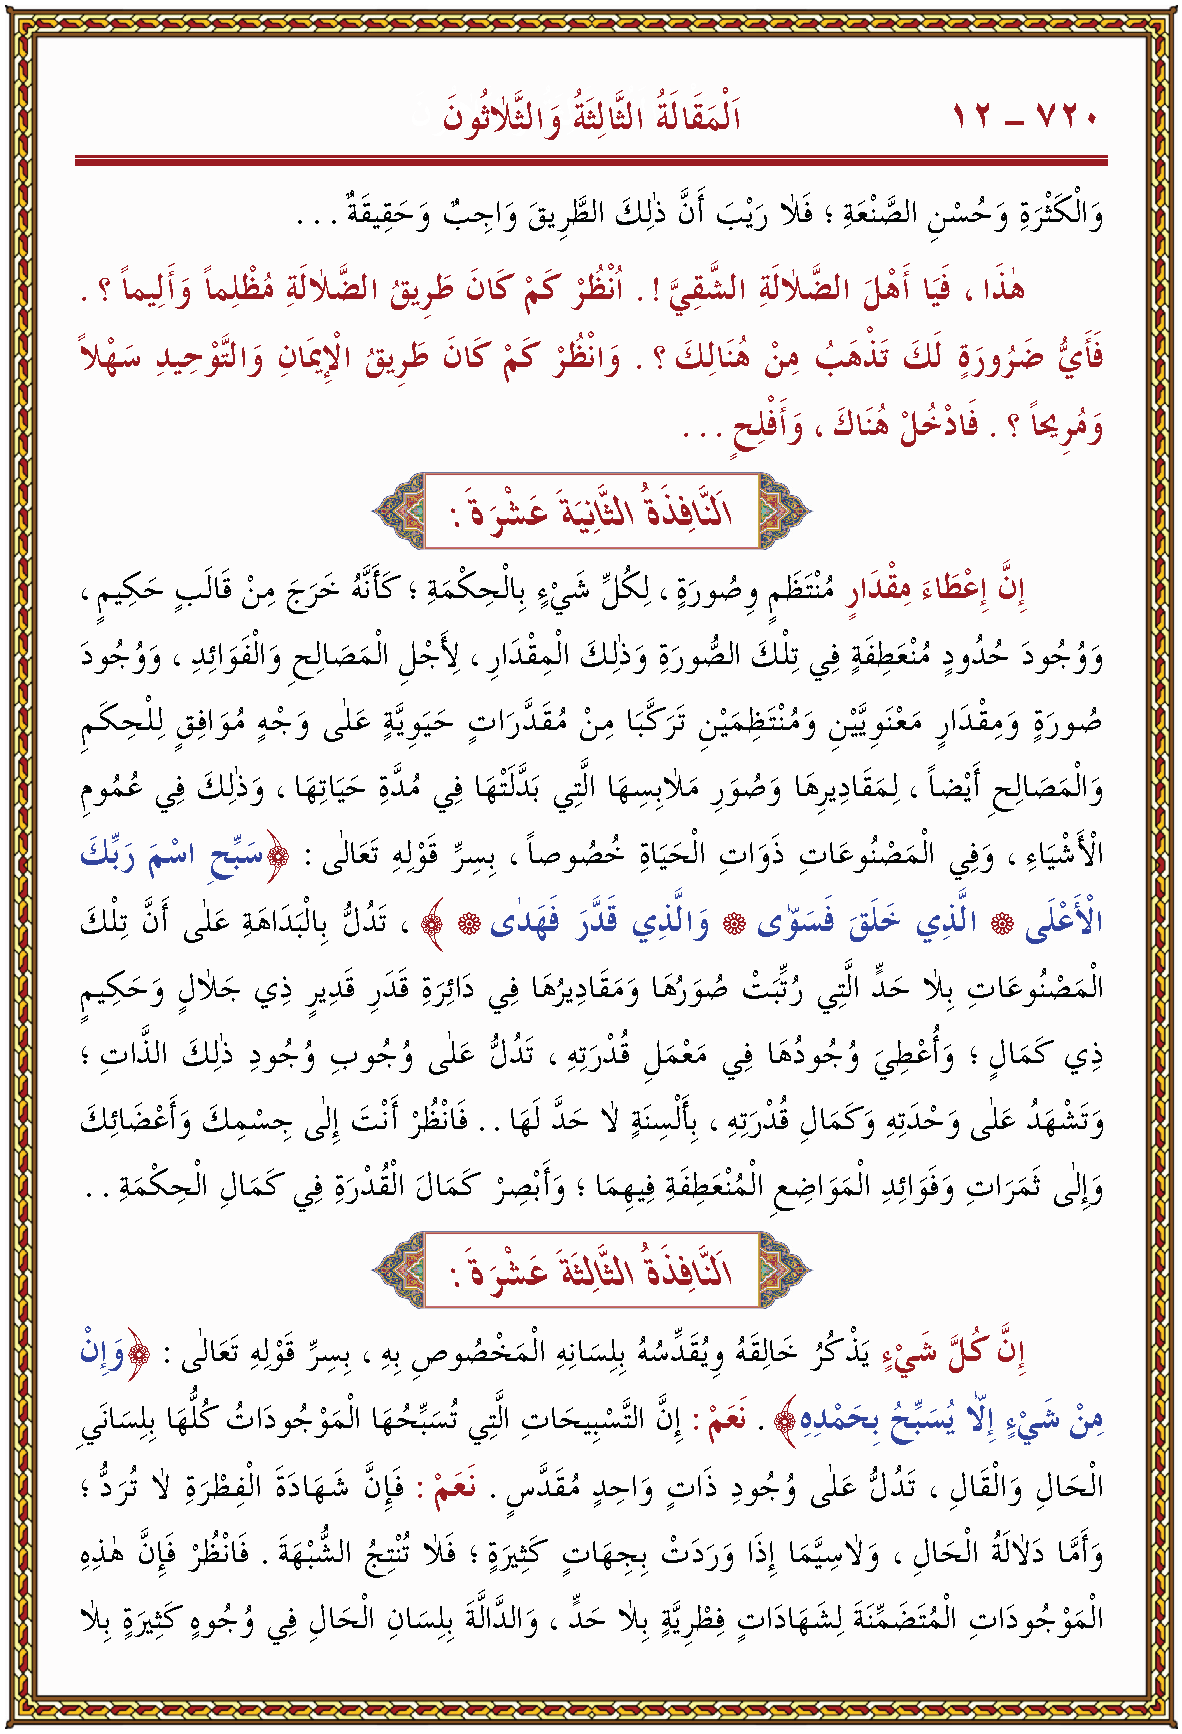 ٧٢٠ ـ ١٢ اَلْمَقَالَةُ الثَّالِثَةُ وَالثَّلاٰثُونَ
وَالْكَثْرَةِ وَحُسْنِ الصَّنْعَةِ ؛ فَلاٰ رَيْبَ أَنَّ ذٰلِكَ الطَّرِيقَ وَاجِبٌ وَحَقِيقَةٌ . . .
هٰذَا ، فَيَا أَهْلَ الضَّلاٰلَةِ الشَّقِيَّ ! . اُنْظُرْ كَمْ كَانَ طَرِيقُ الضَّلاٰلَةِ مُظْلِماً وَأَلِيماً ؟ .
فَأَيُّ ضَرُورَةٍ لَكَ تَذْهَبُ مِنْ هُنَالِكَ ؟ . وَانْظُرْ كَمْ كَانَ طَرِيقُ الْإِيمَانِ وَالتَّوْحِيدِ سَهْلاً
وَمُرِيحاً ؟ . فَادْخُلْ هُنَاكَ ، وَأَفْلِحْ . . .
اَلنَّافِذَةُ الثَّانِيَةَ عَشْرَةَ :
إِنَّ إِعْطَاءَ مِقْدَارٍ مُنْتَظَمٍ وِصُورَةٍ ، لِكُلِّ شَيْءٍ بِالْحِكْمَةِ ؛ كَأَنَّهُ خَرَجَ مِنْ قَالَبٍ حَكِيمٍ ،
وَوُجُودَ حُدُودٍ مُنْعَطِفَةٍ فِي تِلْكَ الصُّورَةِ وَذٰلِكَ الْمِقْدَارِ ، لِأَجْلِ الْمَصَالِحِ وَالْفَوَائِدِ ، وَوُجُودَ
صُورَةٍ وَمِقْدَارٍ مَعْنَوِيَّيْنِ وَمُنْتَظِمَيْنِ تَرَكَّبَا مِنْ مُقَدَّرَاتٍ حَيَوِيَّةٍ عَلٰى وَجْهٍ مُوَافِقٍ لِلْحِكَمِ
وَالْمَصَالِحِ أَيْضاً ، لِمَقَادِيرِهَا وَصُوَرِ مَلاٰبِسِهَا الَّتِي بَدَّلَتْهَا فِي مُدَّةِ حَيَاتِهَا ، وَذٰلِكَ فِي عُمُومِ
الْأَشْيَاءِ ، وَفِي الْمَصْنُوعَاتِ ذَوَاتِ الْحَيَاةِ خُصُوصاً ، بِسِرِّ قَوْلِهِ تَعَالٰى : ﴿سَبِّحِ اسْمَ رَبِّكَ
الْأَعْلَى ۞ الَّذِي خَلَقَ فَسَوّٰى ۞ وَالَّذِي قَدَّرَ فَهَدٰى ۞ ﴾ ، تَدُلُّ بِالْبَدَاهَةِ عَلٰى أَنَّ تِلْكَ
الْمَصْنُوعَاتِ بِلاٰ حَدٍّ الَّتِي رُتِّبَتْ صُوَرُهَا وَمَقَادِيرُهَا فِي دَائِرَةِ قَدَرِ قَدِيرٍ ذِي جَلاٰلٍ وَحَكِيمٍ
ذِي كَمَالٍ ؛ وَأُعْطِيَ وُجُودُهَا فِي مَعْمَلِ قُدْرَتِهِ ، تَدُلُّ عَلٰى وُجُوبِ وُجُودِ ذٰلِكَ الذَّاتِ ؛
وَتَشْهَدُ عَلٰى وَحْدَتِهِ وَكَمَالِ قُدْرَتِهِ ، بِأَلْسِنَةٍ لاٰ حَدَّ لَهَا . . فَانْظُرْ أَنْتَ إِلٰى جِسْمِكَ وَأَعْضَائِكَ
وَإِلٰى ثَمَرَاتِ وَفَوَائِدِ الْمَوَاضِعِ الْمُنْعَطِفَةِ فِيهِمَا ؛ وَأَبْصِرْ كَمَالَ الْقُدْرَةِ فِي كَمَالِ الْحِكْمَةِ . .
اَلنَّافِذَةُ الثَّالِثَةَ عَشْرَةَ :
إِنَّ كُلَّ شَيْءٍ يَذْكُرُ خَالِقَهُ وِيُقَدِّسُهُ بِلِسَانِهِ الْمَخْصُوصِ بِهِ ، بِسِرِّ قَوْلِهِ تَعَالٰى : ﴿وَإِنْ
مِنْ شَيْءٍ إِلاّٰ يُسَبِّحُ بِحَمْدِهِ﴾ . نَعَمْ : إِنَّ التَّسْبِيحَاتِ الَّتِي تُسَبِّحُهَا الْمَوْجُودَاتُ كُلُّهَا بِلِسَانَيِ
الْحَالِ وَالْقَالِ ، تَدُلُّ عَلٰى وُجُودِ ذَاتٍ وَاحِدٍ مُقَدَّسٍ . نَعَمْ : فَإِنَّ شَهَادَةَ الْفِطْرَةِ لاٰ تُرَدُّ ؛
وَأَمَّا دَلاٰلَةُ الْحَالِ ، وَلاٰسِيَّمَا إِذَا وَرَدَتْ بِجِهَاتٍ كَثِيرَةٍ ؛ فَلاٰ تُنْتِجُ الشُّبْهَةَ . فَانْظُرْ فَإِنَّ هٰذِهِ
الْمَوْجُودَاتِ الْمُتَضَمِّنَةَ لِشَهَادَاتٍ فِطْرِيَّةٍ بِلاٰ حَدٍّ ، وَالدَّالَّةَ بِلِسَانِ الْحَالِ فِي وُجُوهٍ كَثِيرَةٍ بِلاٰ